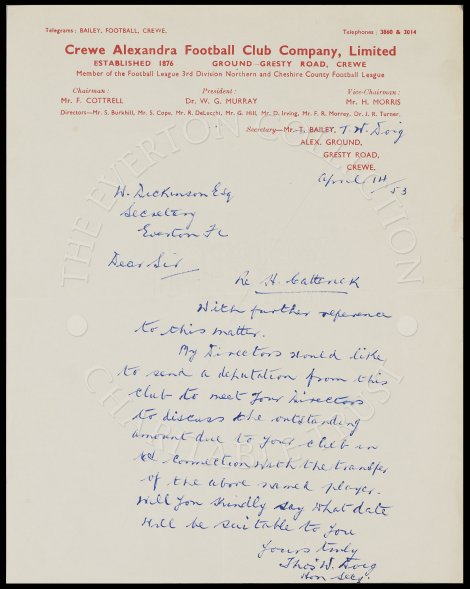 Telegrams: BAILEY, FOOTBALL, CREWE. Telephones: 3860 & 3014
Crewe Alexandra Football Club Company, Limited
ESTABLISHED 1876 GROUND—GRESTY ROAD, CREWE
Member of the Football League 3rd Division Northern and Cheshire County Football League
Chairman: President: Vice-Chairman:
Mr. F. COTTRELL Dr. W. G. MURRAY Mr. H. MORRIS
Directors—Mr. S. Burkhill, Mr. S. Cope, Mr. R. DeLucchi, Mr. G. Hill, Mr. D. Irving, Mr. F. R. Morrey, Dr. J. R. Turner,
Secretary—Mr. T. BAILEY, T. W. Doig
ALEX. GROUND,
GRESTY ROAD,
CREWE.
April 14/53
W. Dickinson Esq
Secretary
Everton Fc
Dear Sir
Re H. Catterick
With further reference
to this matter.
My Directors would like
to send a deputation from this
club to meet your Directors
to discuss the outstanding
amount due to your club in
connection with the transfer
of the above named player.
Will you kindly say what date
will be suitable to you
Yours truly
Thos W. Doig
Hon Secy.
THE EVERTON COLLECTION
CHARITABLE TRUST